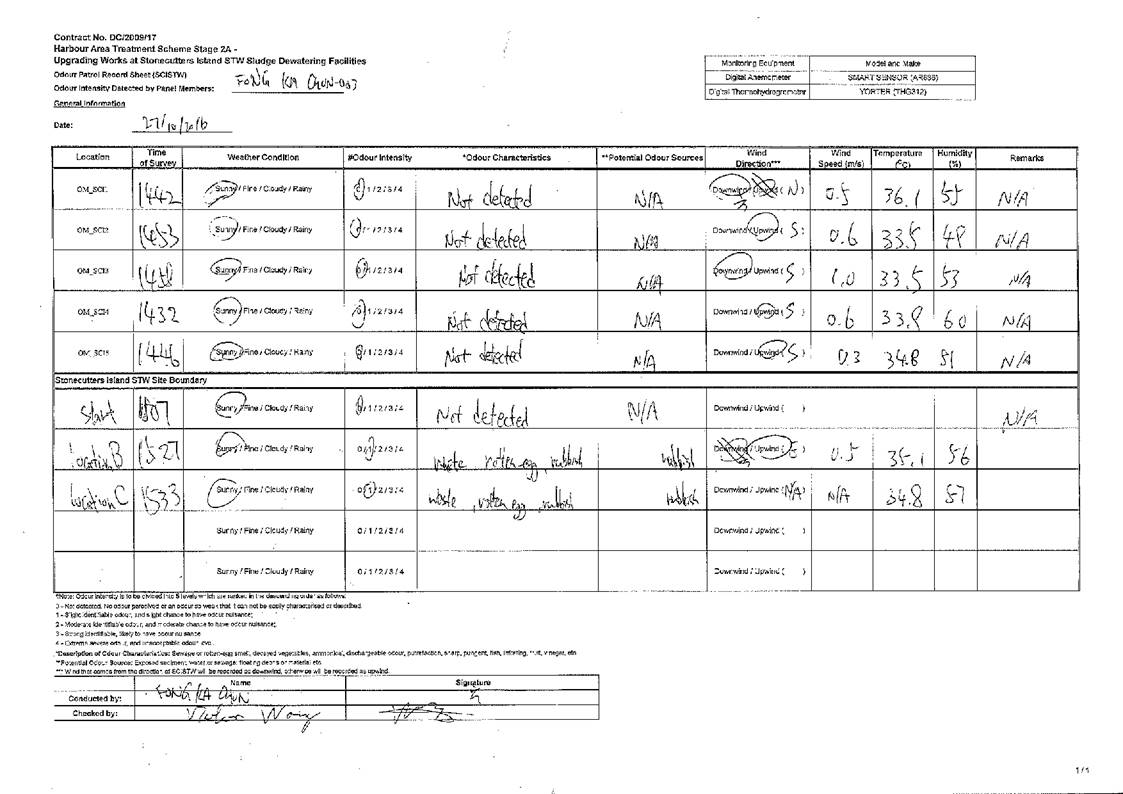 Contract No. DC/2009/17
Harbour Area Treatment Scheme Stage 2A -
Upgrading Works at Stonecutters Island STW Sludge Dewatering Facilities
Odour Patrol Record Sheet (SCISTW)
Odour Intensity Detected by Panel Members: FONG KA CHUN
General Information
Monitoring Equipment Model and Make
Digital Anemometer SMART SENSOR (AR836)
Digital Thermohydrogrometer YORTER (THG312)
Date: 27/10/2016
Location Time of Survey Weather Condition #Odour Intensity *Odour Characteristics **Potential Odour Sources Wind Direction*** Wind Speed (m/s) Temperature (°C) Humidity (%) Remarks
OM_SCI1 1442 Sunny / Fine / Cloudy / Rainy 0 / 1 / 2 / 3 / 4 Not detected N/A Downwind / Upwind ( N ) 0.5 36.1 55 N/A
OM_SCI2 1453 Sunny / Fine / Cloudy / Rainy 0 / 1 / 2 / 3 / 4 Not detected N/A Downwind / Upwind ( S ) 0.6 33.5 48 N/A
OM_SCI3 1438 Sunny / Fine / Cloudy / Rainy 0 / 1 / 2 / 3 / 4 Not detected N/A Downwind / Upwind ( S ) 1.0 33.5 53 N/A
OM_SCI4 1432 Sunny / Fine / Cloudy / Rainy 0 / 1 / 2 / 3 / 4 Not detected N/A Downwind / Upwind ( S ) 0.6 33.8 60 N/A
OM_SCI5 1446 Sunny / Fine / Cloudy / Rainy 0 / 1 / 2 / 3 / 4 Not detected N/A Downwind / Upwind ( S ) 0.3 34.8 51 N/A
Stonecutters Island STW Site Boundary
Start 1507 Sunny / Fine / Cloudy / Rainy 0 / 1 / 2 / 3 / 4 Not detected N/A Downwind / Upwind ( ) N/A
Location B 1527 Sunny / Fine / Cloudy / Rainy 0 / 1 / 2 / 3 / 4 waste, rotten-egg, rubbish rubbish Downwind / Upwind ( S ) 0.5 35.1 56
Location C 1533 Sunny / Fine / Cloudy / Rainy 0 / 1 / 2 / 3 / 4 waste, rotten egg, rubbish rubbish Downwind / Upwind (N/A) N/A 34.8 57
Sunny / Fine / Cloudy / Rainy 0 / 1 / 2 / 3 / 4 Downwind / Upwind ( )
Sunny / Fine / Cloudy / Rainy 0 / 1 / 2 / 3 / 4 Downwind / Upwind ( )
#Note: Odour intensity is to be divided into 5 levels which are ranked in the descending order as follows:
0 - Not detected. No odour perceived or an odour so weak that it can not be easily characterised or described.
1 - Slight identifiable odour, and slight chance to have odour nuisance;
2 - Moderate identifiable odour, and moderate chance to have odour nuisance;
3 - Strong identifiable, likely to have odour nuisance
4 - Extreme severe odour, and unacceptable odour level.
*Description of Odour Characteristics: Sewage or rotten-egg smell, decayed vegetables, ammonical, dischargeable odour, putrefaction, sharp, pungent, fish, irritating, fruit, vinegar, etc
**Potential Odour Source: Exposed sediment, water or sewage, floating debris or material etc
*** Wind that comes from the direction of SCISTW will be recorded as downwind, otherwise will be recorded as upwind.
Name Signature
Conducted by: FONG KA CHUN
Checked by: Wong
1 / 1